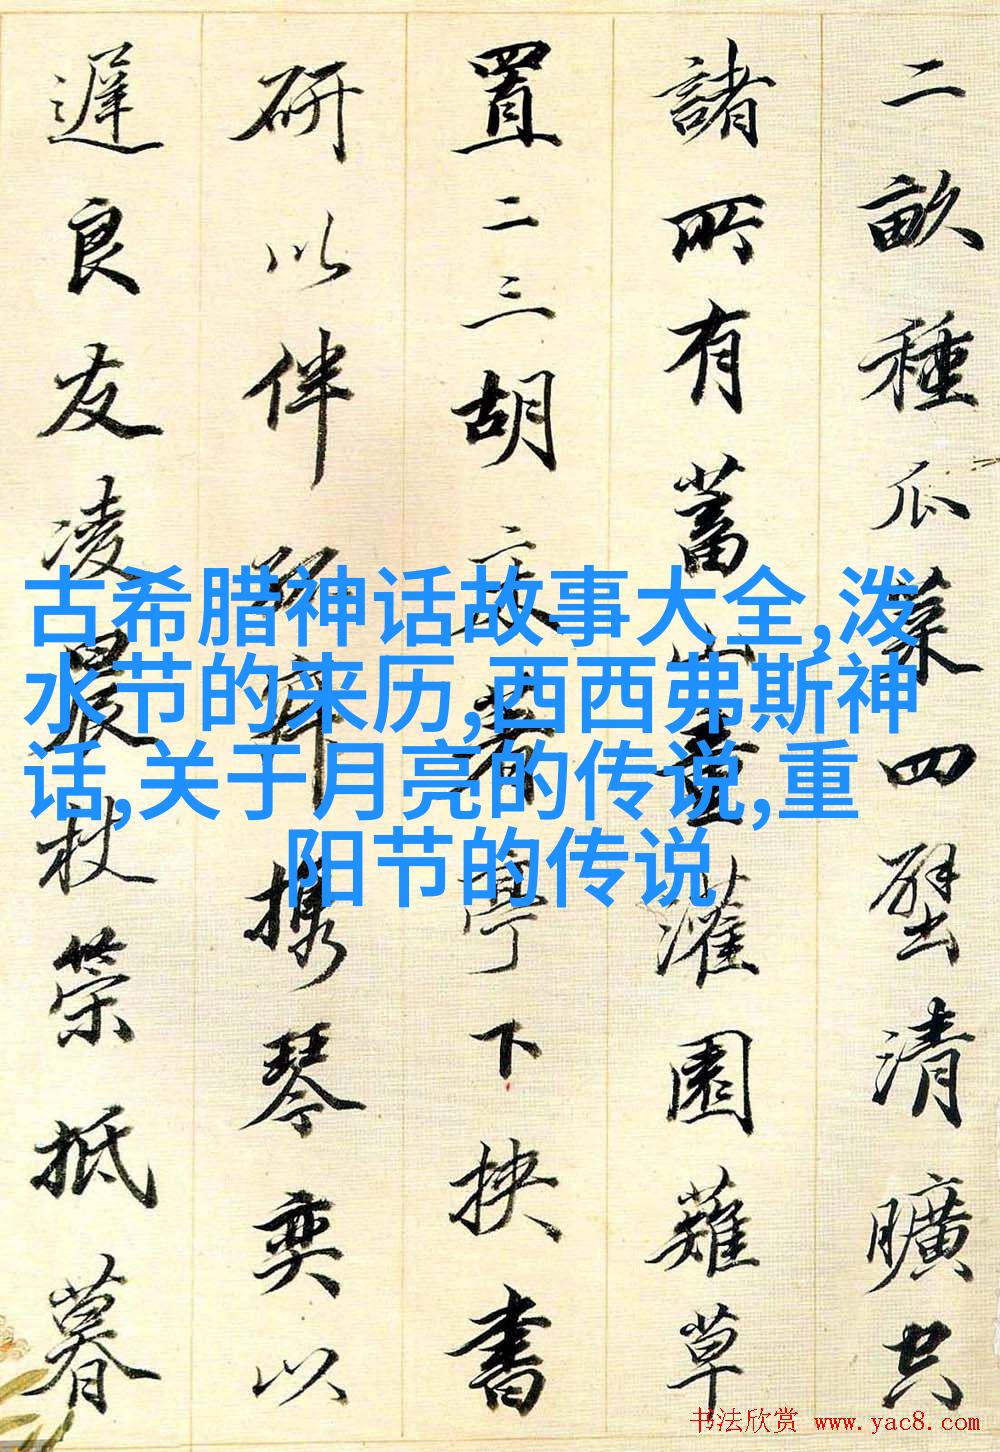 二畝種瓜菜四壁清曠空
諸所有蓄山童灌園薙草
置二三胡床着亭下挾書
研以伴孤寂携琴奕以
遲良友凌晨杖策抵暮
古希腊神话故事大全,泼
水节的来历,西西弗斯神
话,关于月亮的传说,重
阳节的传说
书法欣赏 www.yac8.com